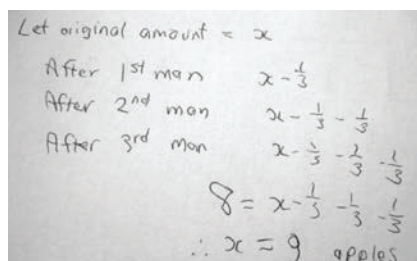 Let original amount = x
After 1st man x - 1/3
After 2nd man x - 1/3 - 1/3
After 3rd man x - 1/3 - 1/3 - 1/3
8 = x - 1/3 - 1/3 - 1/3
∴ x = 9 apples